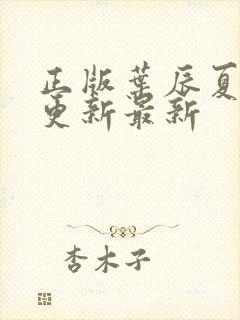 正版叶辰夏
更新最新
杏木子